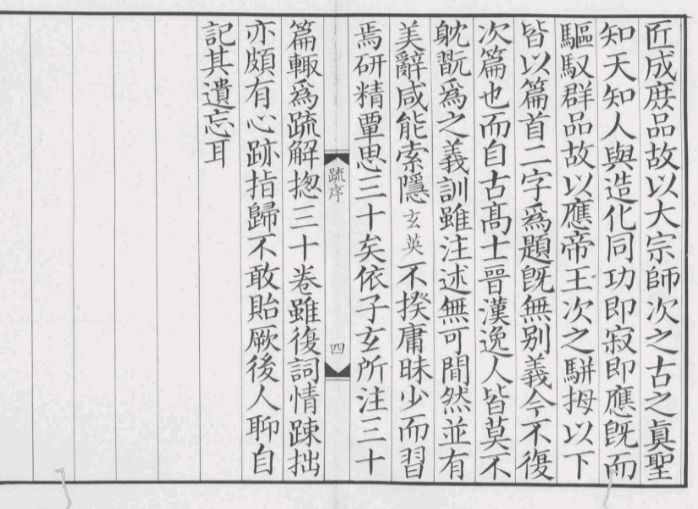 匠成庶品故以大宗師次之古之真聖
知天知人與造化同功即寂即應旣而
驅馭群品故以應帝王次之駢拇以下
皆以篇首二字為題旣無别義今不復
次篇也而自古髙士晉漢逸人皆莫不
躭翫為之義訓雖注述無可間然並有
美辭咸能索隱玄英不揆庸昧少而習
焉研精覃思三十矣依子玄所注三十
疏序
四
篇輙為䟽解揔三十卷雖復詞情踈拙
亦頗有心跡指歸不敢貽厥後人聊自
記其遺忘耳